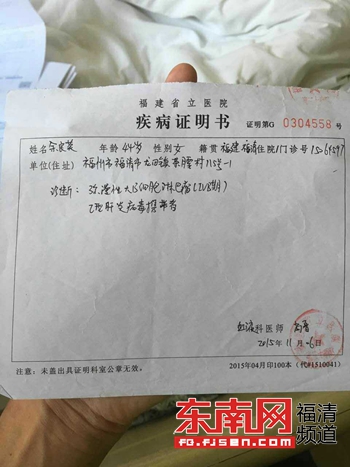 福建省立医院
疾病证明书 证明第G 0304558 号
姓名 年龄 44岁 性别 女 籍贯 福建福清 住院门诊号
单位(住址) 福州市福清市龙田镇
诊断: 弥漫性大B细胞淋巴瘤(IVB期)
乙型肝炎病毒携带者
血液科医师
2015年11月06日
2015年04月印100本(代码510041)
注意:未盖出具证明科室公章无效。
东南网 福清频道
FQ.FJSEN.COM